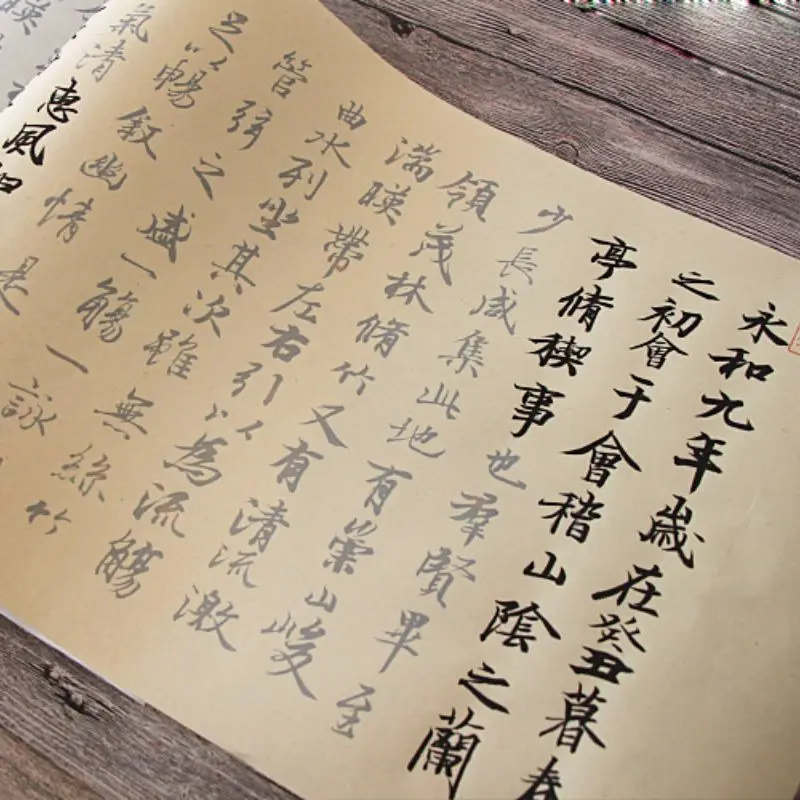 永和九年歲在癸丑暮春
之初會于會稽山陰之蘭
亭脩稧事也羣賢畢至
少長咸集此地有崇山峻
領茂林脩竹又有清流激
湍暎帶左右引以為流觴
曲水列坐其次雖無絲竹
管弦之盛一觴一詠
足以暢叙幽情是
氣清惠風和